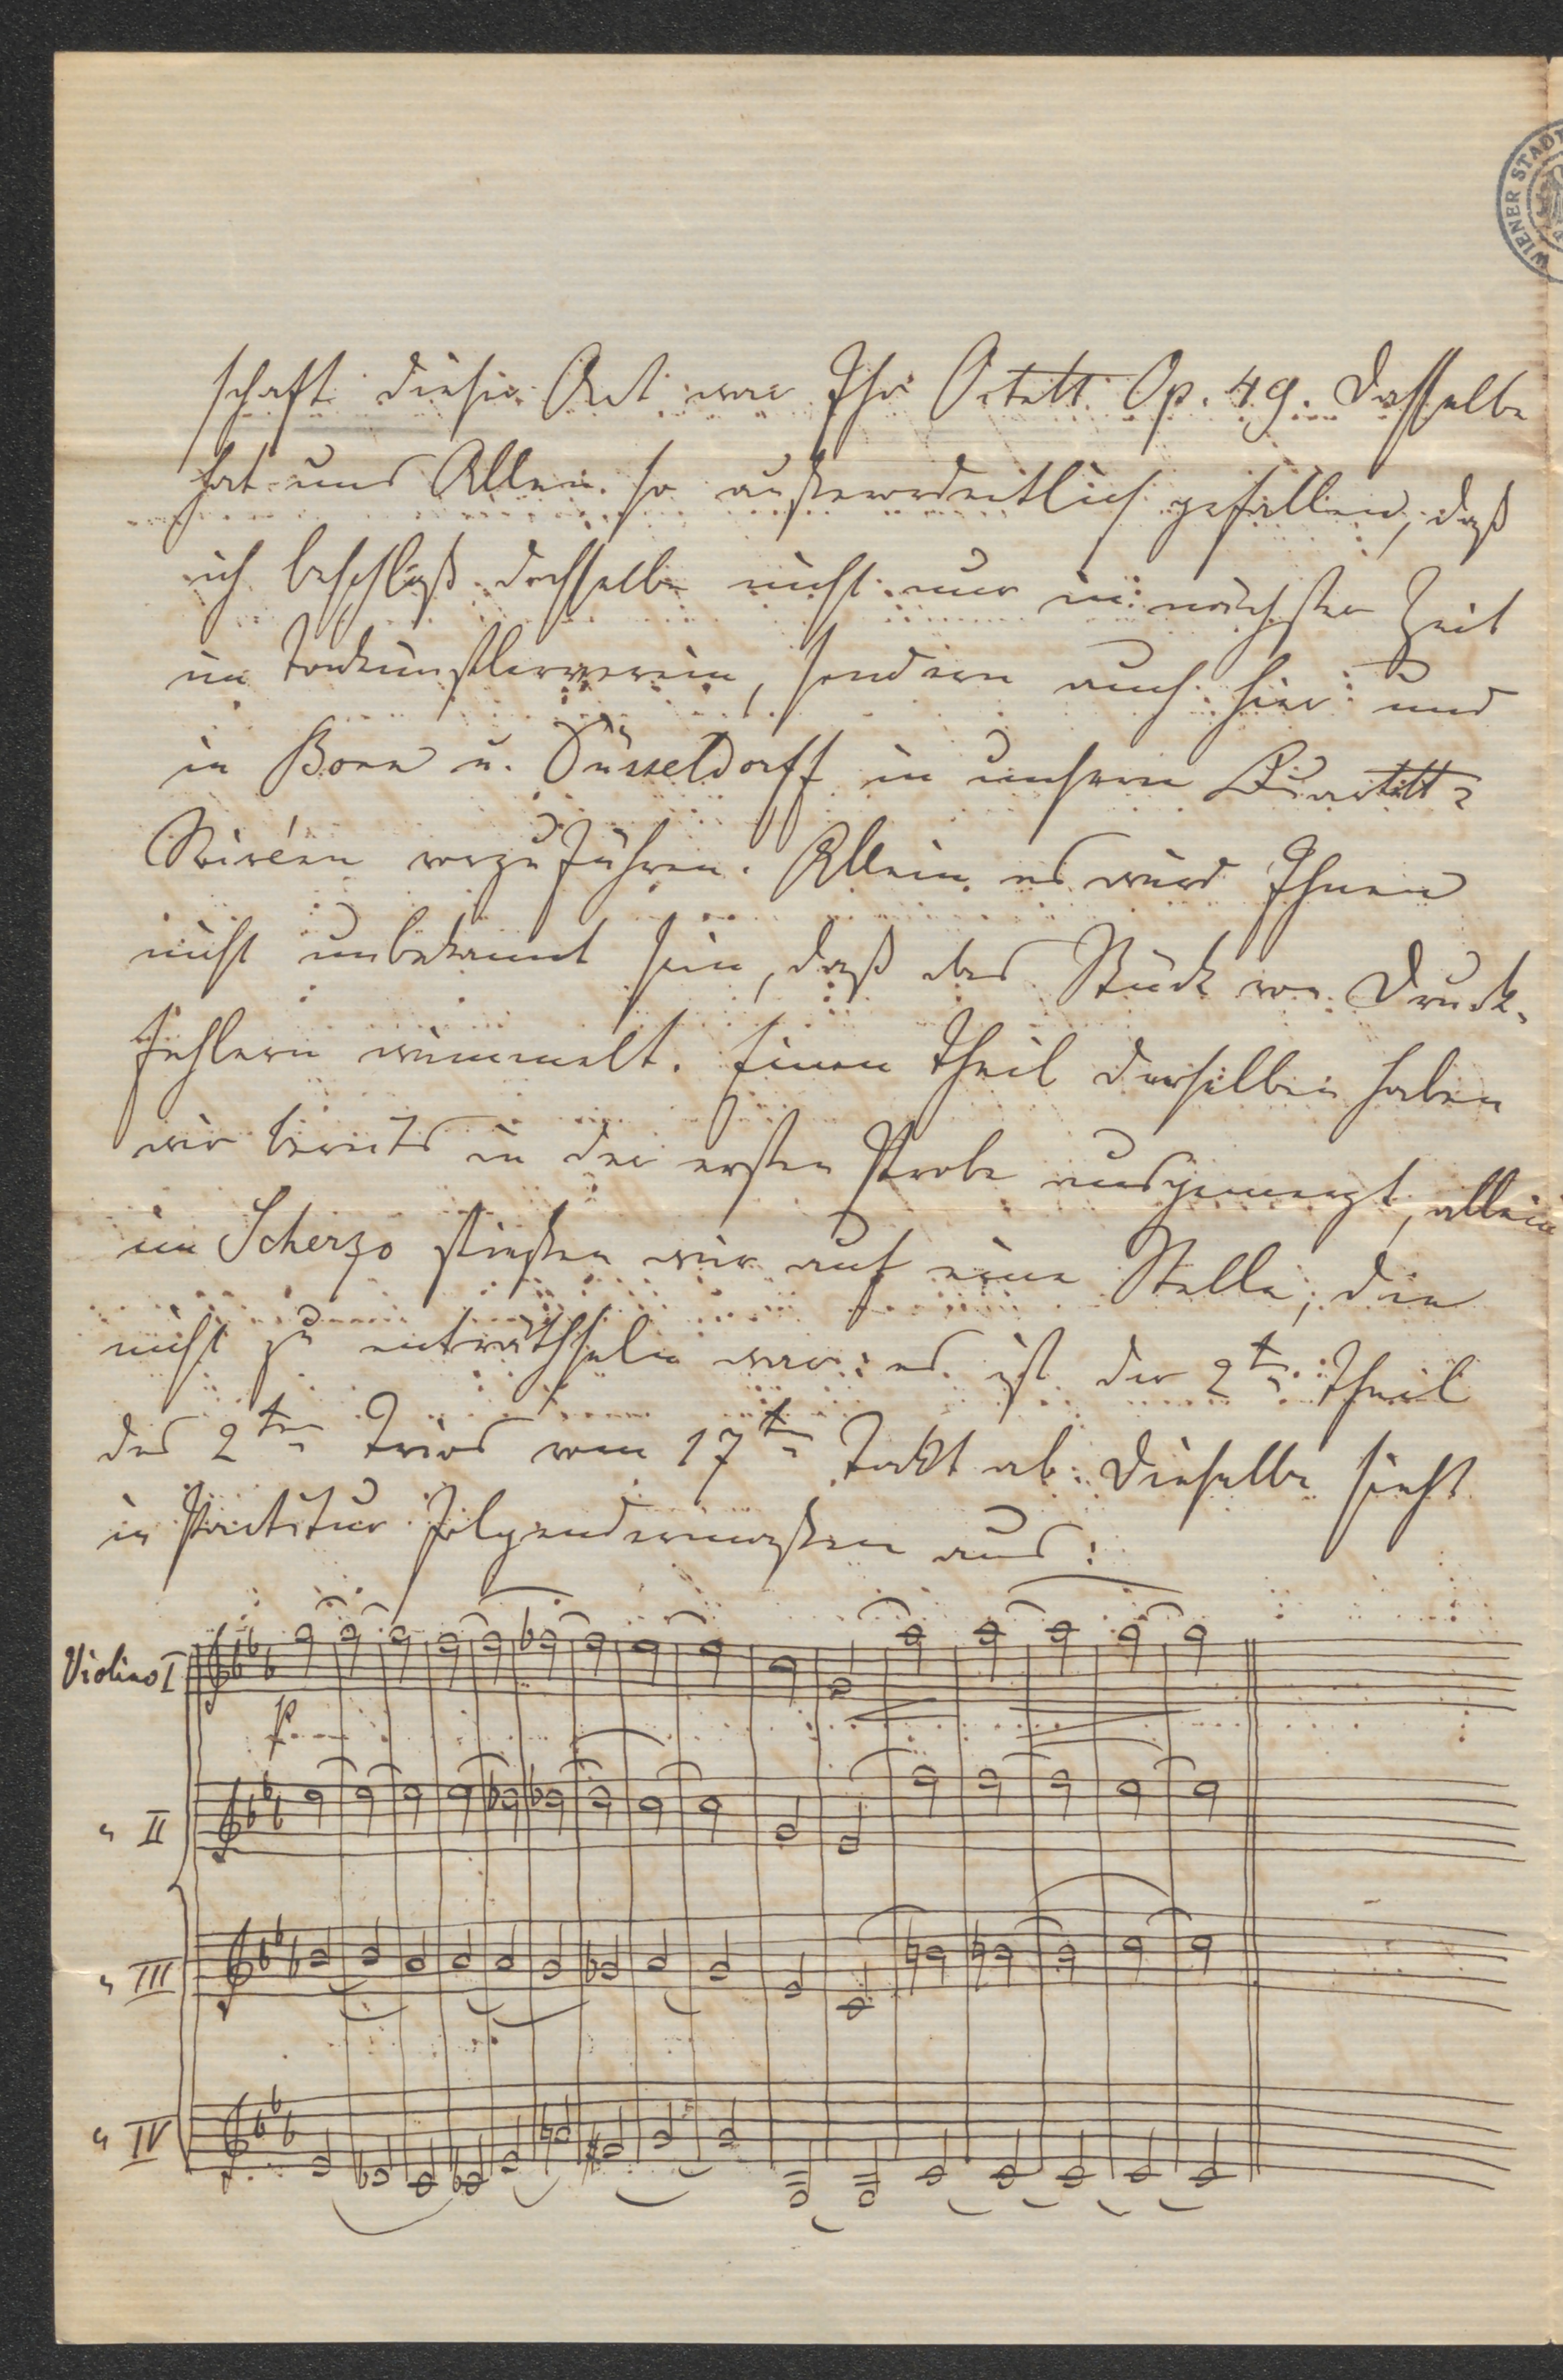 WIENER STADT
schaft dieser Art war Ihr Octett Op. 49. Dasselbe
hat uns Allen so außerordentlich gefallen, daß
ich beschloß dasselbe nicht nur in nächster Zeit
im Tonkünstlerverein, sondern auch hier und
in Bonn u. Düsseldorff in unseren Quartett-
Soiréen vorzuführen. Allein es wird Ihnen
nicht unbekannt sein, daß das Stück von Druck-
fehlern wimmelt. Einen Theil derselben haben
wir bereits in der ersten Probe ausgemerzt, allein
im Scherzo stießen wir auf eine Stelle, die
nicht zu enträthseln war: es ist der 2te Theil
des 2ten Trios vom 17ten Takt ab. Dieselbe sieht
in Partitur folgendermaßen aus:
Violino I
p
" II
" III
" IV